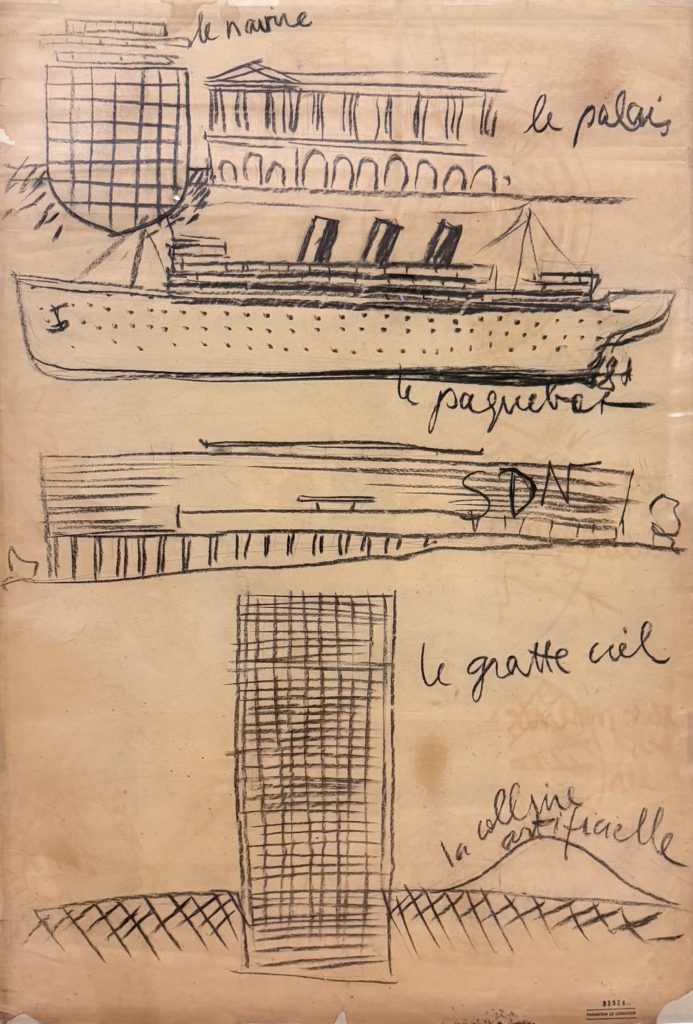 le navire
le palais
le paquebot
SDN
le gratte ciel
la colline
artificielle
FONDATION LE CORBUSIER